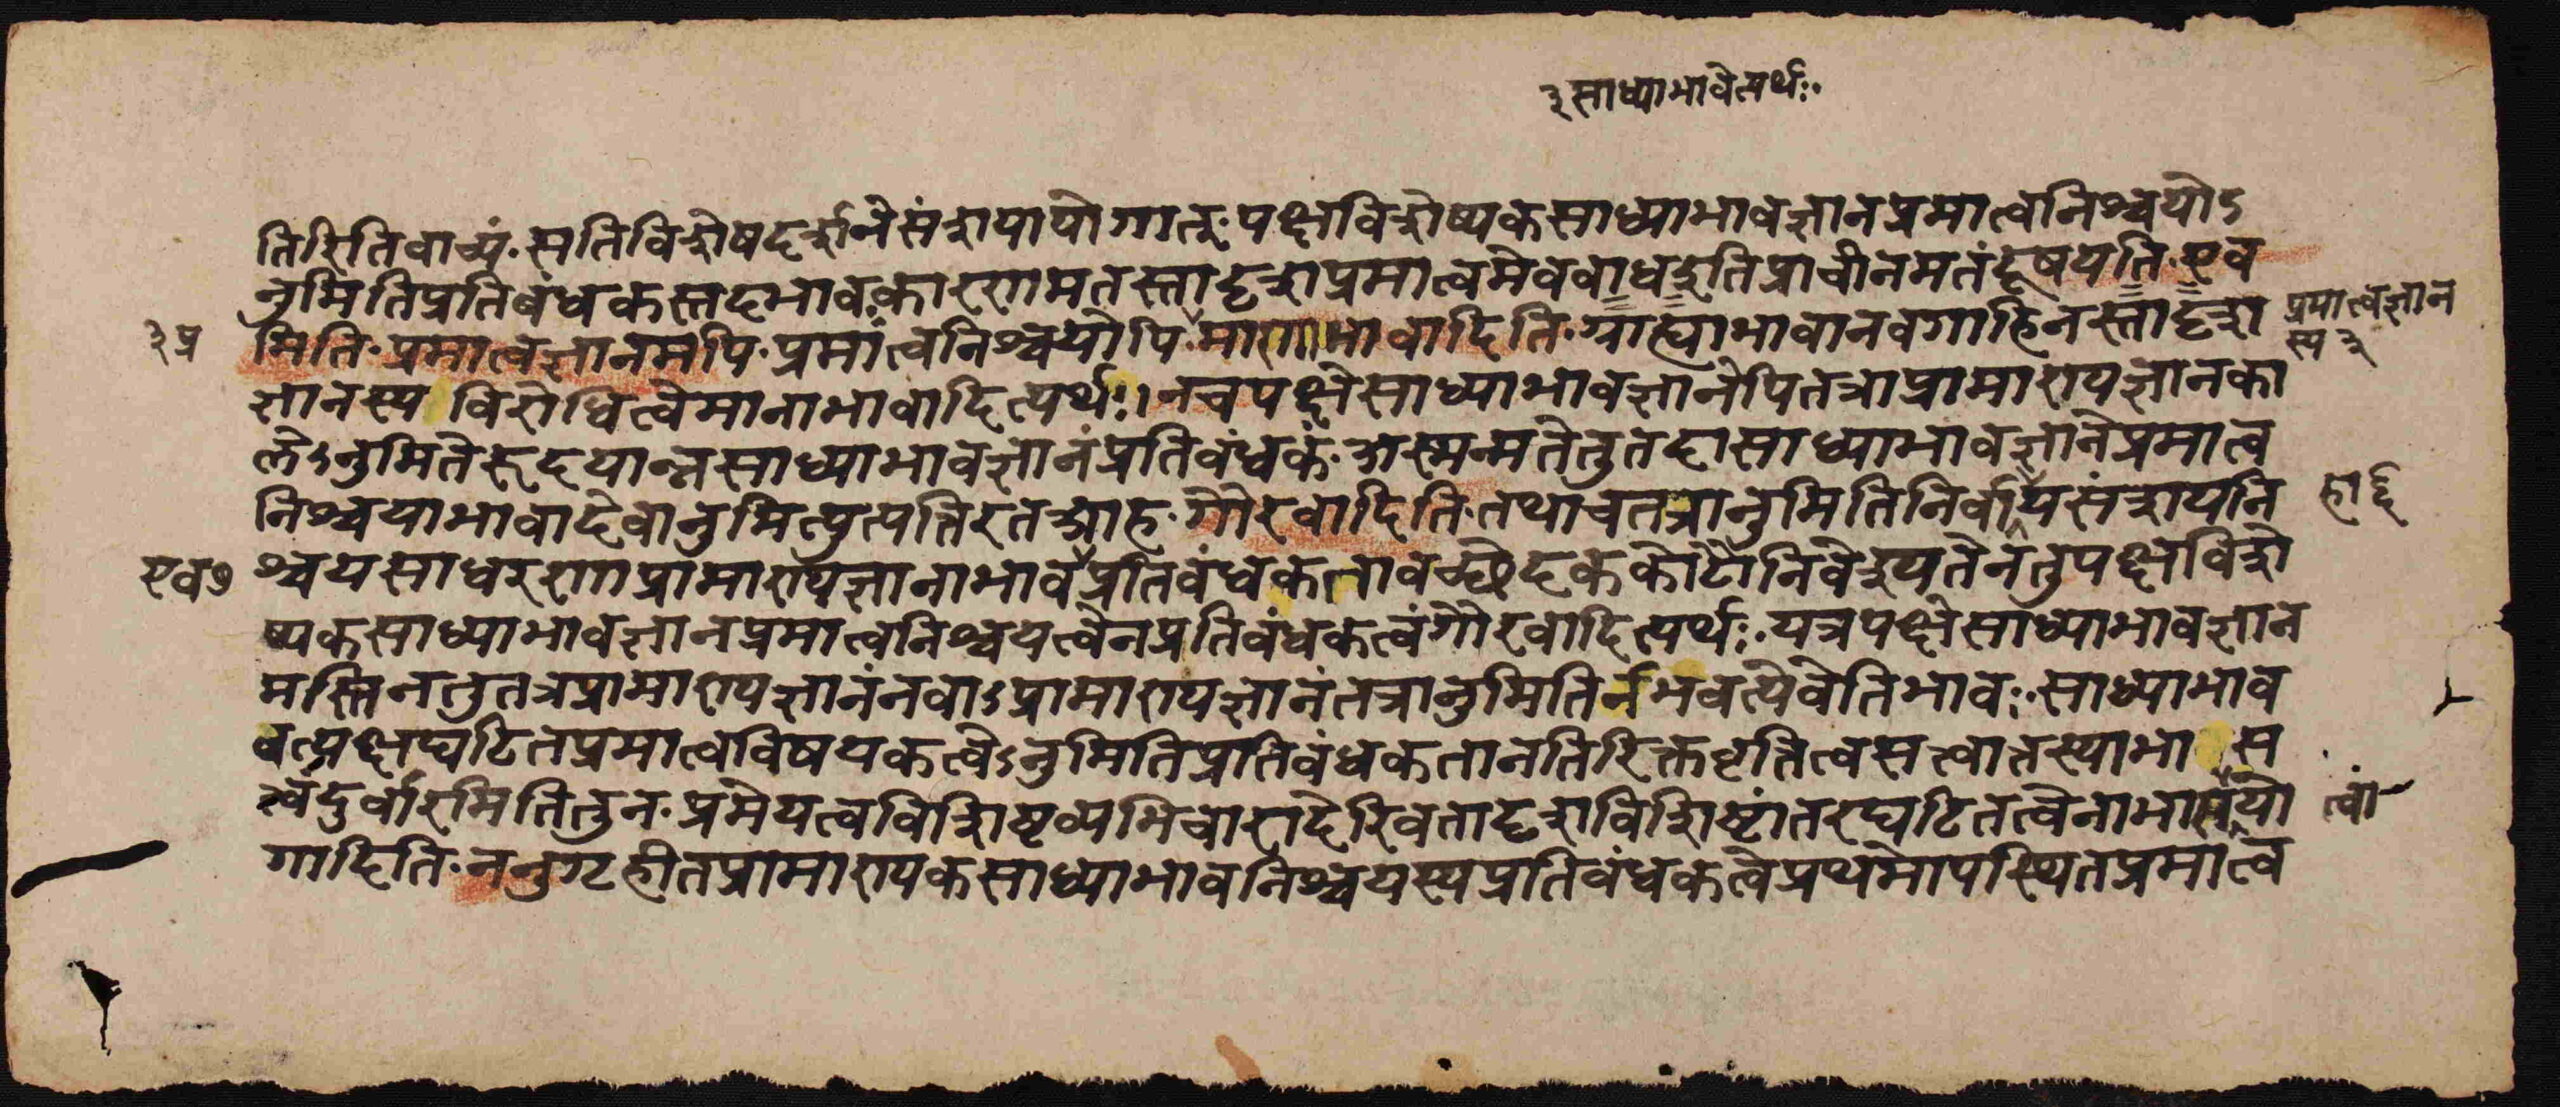 ३ साध्याभावेत्यर्थः.
तिरिति वाच्यं. सति विशेषदर्शने संशयायोगात्. पक्षविशेष्यकसाध्याभावज्ञानप्रमात्वनिश्चयोऽ
नुमितिप्रतिबंधकस्तदभावः कारणमतस्तादृशप्रमात्वमेव बाध इति प्राचीनमतं दूषयति. एव
३ प्र मिति. प्रमात्वज्ञानमपि. प्रमात्वनिश्चयोपि. माणाभावादिति. ग्राह्याभावानवगाहिनस्तादृश प्रमात्वज्ञान
स्य ३
ज्ञानस्य विरोधित्वे मानाभावादित्यर्थः।. न च पक्षे साध्याभावज्ञानेपि तत्राप्रामाण्यज्ञानका
लेऽनुमितेरुदयान्न साध्याभावज्ञानं प्रतिबंधकं. अस्मन्मते तु तदा साध्याभावज्ञाने प्रमात्व
निश्चयाभावादेवानुमित्युत्पत्तिरत आह. गौरवादिति. तथा च तत्रानुमितिनिर्वाय संशयनि हा ६
एव ७ श्चयसाधरणाप्रामाण्यज्ञानाभाव प्रतिबंधकतावच्छेदककोटौ निवेश्यते न तु पक्षविशे
ष्यकसाध्याभावज्ञानप्रमात्वनिश्चयत्वेन प्रतिबंधकत्वं गौरवादित्यर्थः. यत्र पक्षे साध्याभावज्ञान
मस्ति न तु तत्र प्रामाण्यज्ञानं न वाऽप्रामाण्यज्ञानं तत्रानुमितिर्न भवत्येवेति भावः. साध्याभाव
वत्पक्षघटितप्रमात्वविषयकत्वेऽनुमितिप्रतिबंधकतानतिरिक्तवृत्तित्वसत्वात्तस्याभा स
त्वं दुर्वारमिति तु न. प्रमेयत्वविशिष्टव्यभिचारादेरिव तादृशविशिष्टांतरघटितत्वेनाभासयो त्वा
गादिति. ननु गृहीतप्रामाण्यकसाध्याभावनिश्चयस्य प्रतिबंधकत्वे प्रथमोपस्थितप्रमात्व